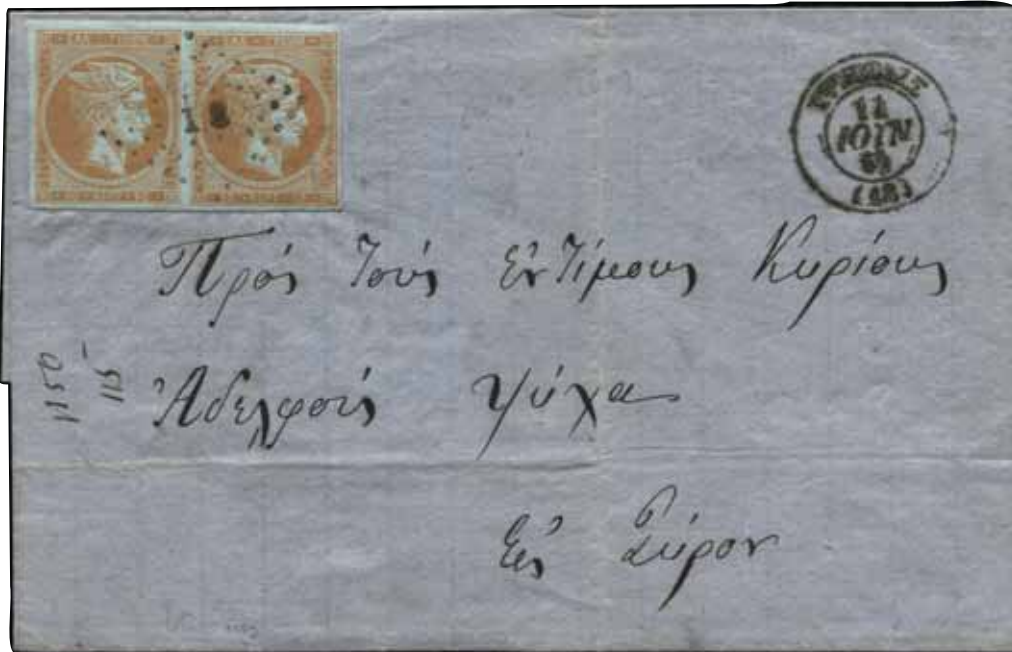 11
ΙΟΥΝ
(48)
Πρός Τούς Εντίμους Κυρίους
Ἀδελφούς Ψύχα
Εἰς Σύρον
1150
115-